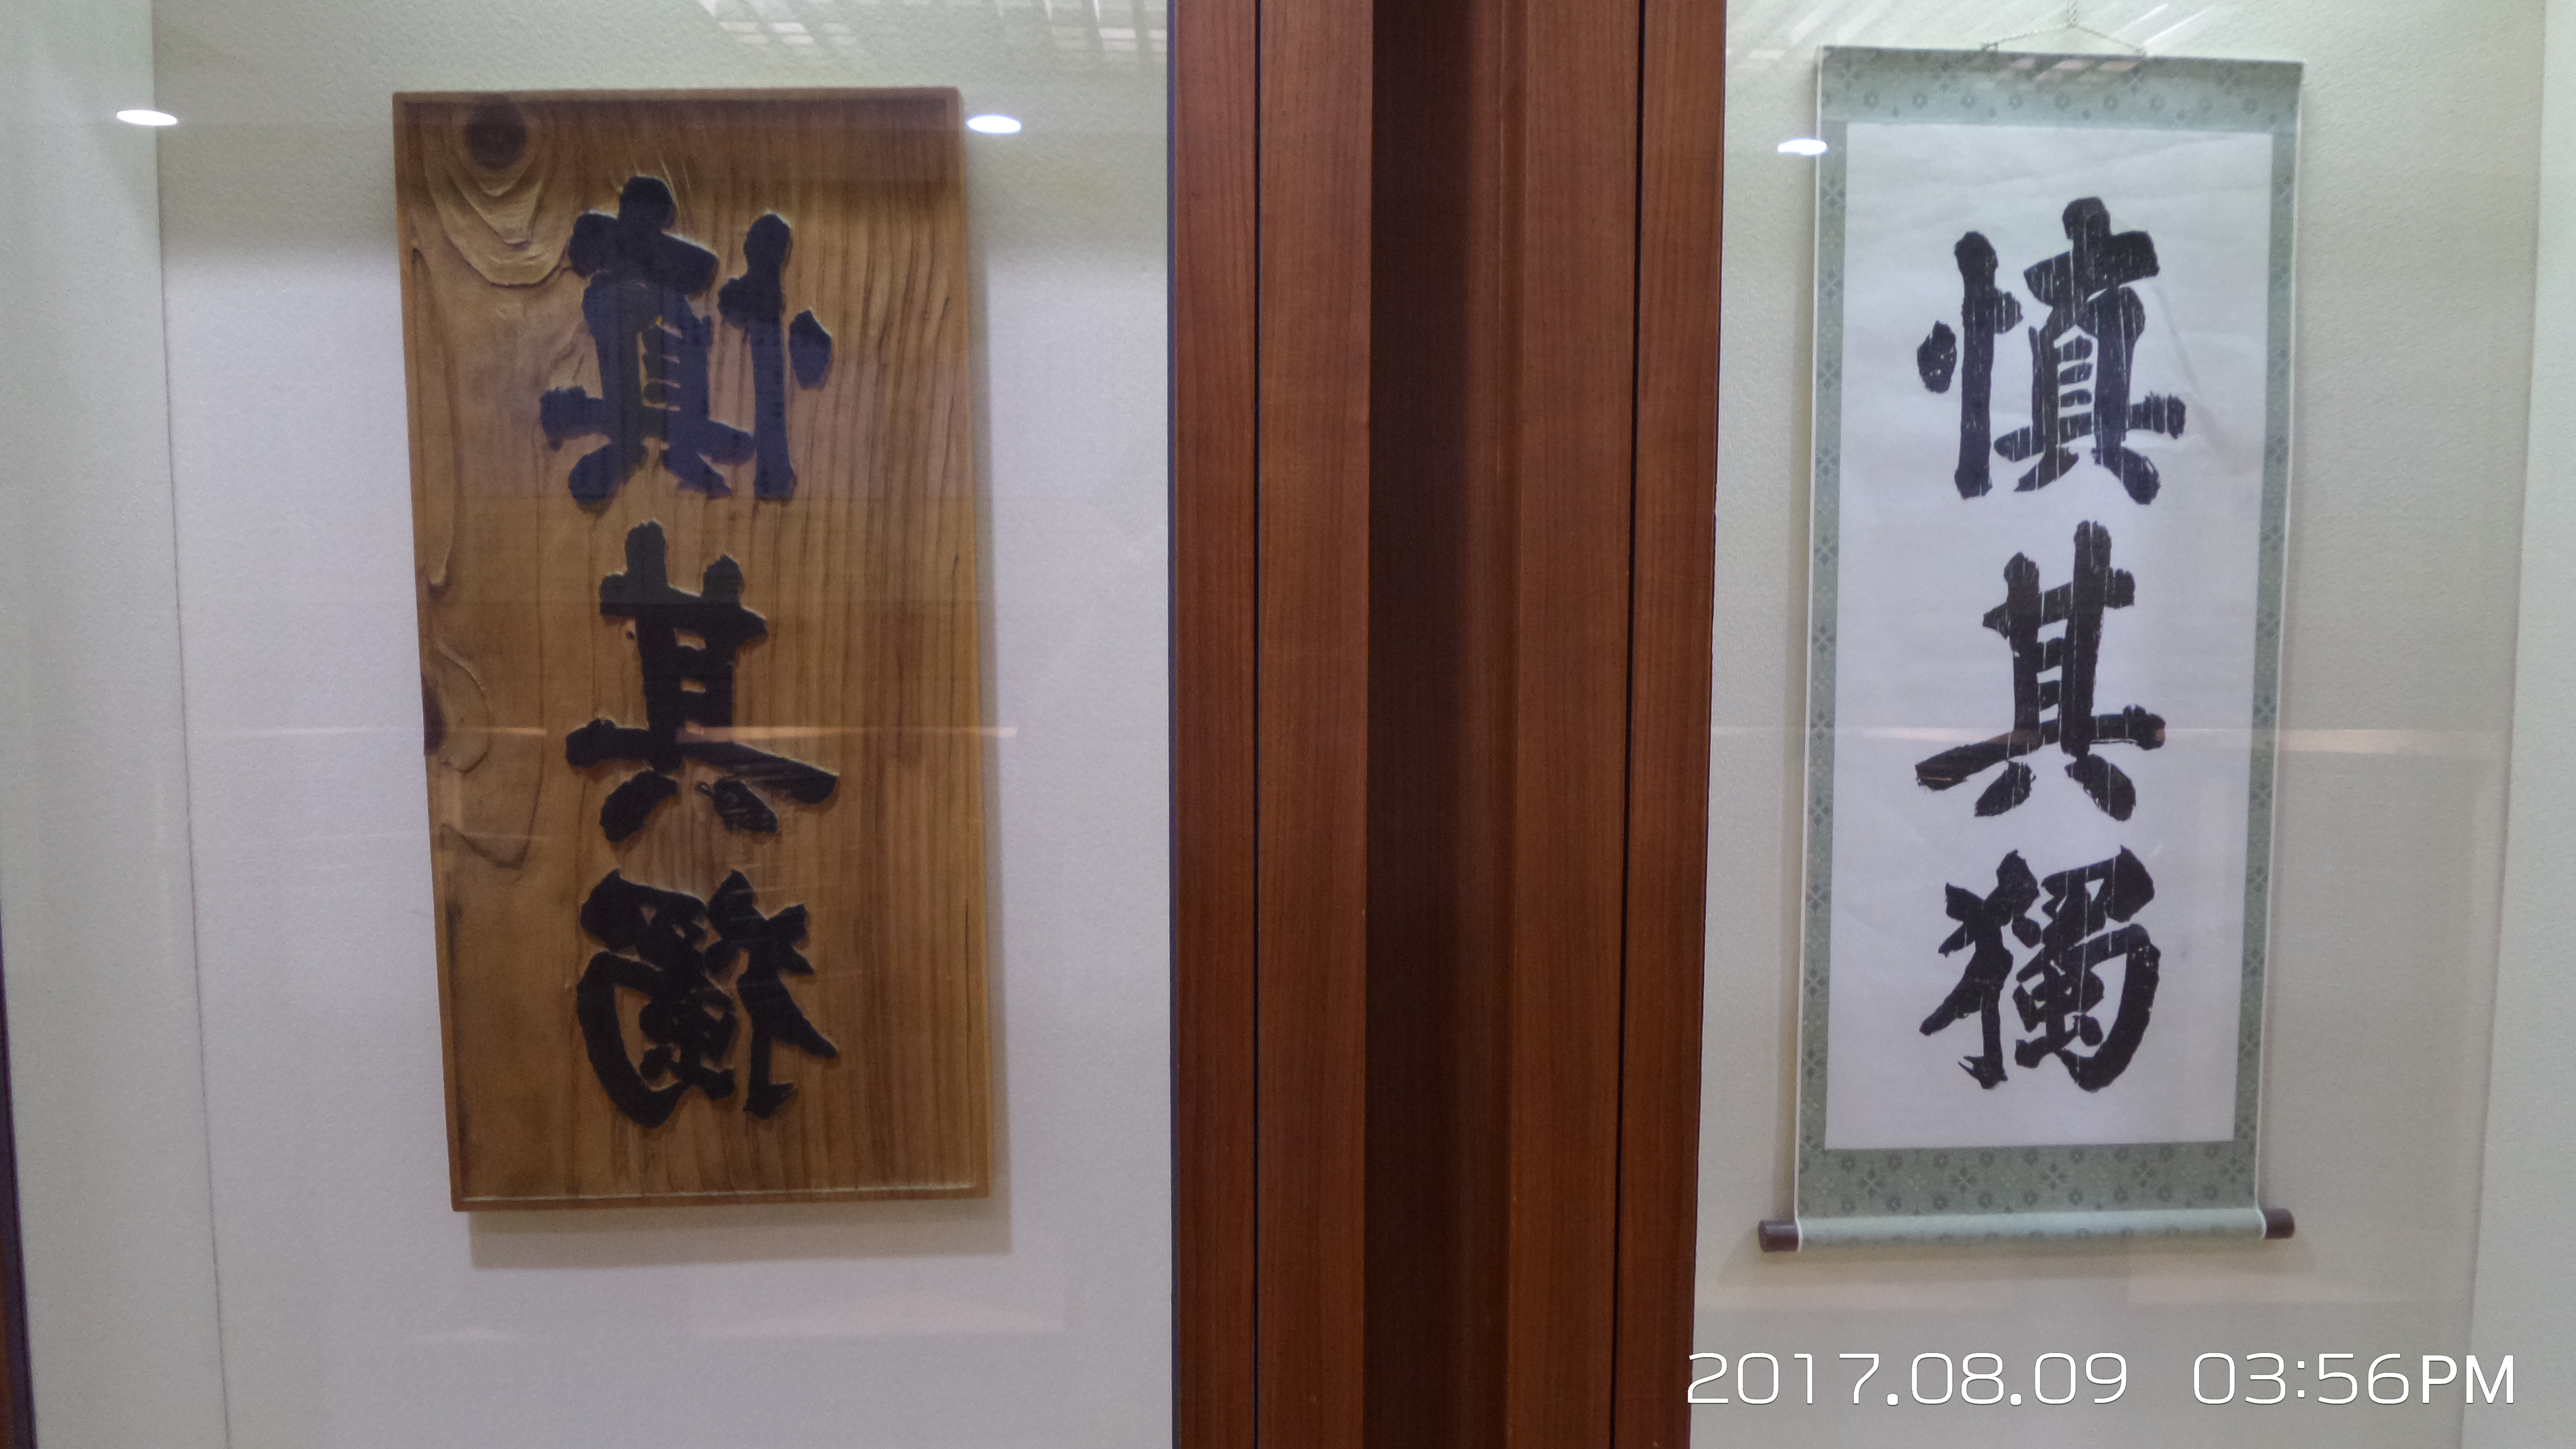 慎其獨
慎其獨
2017.08.09 03:56PM